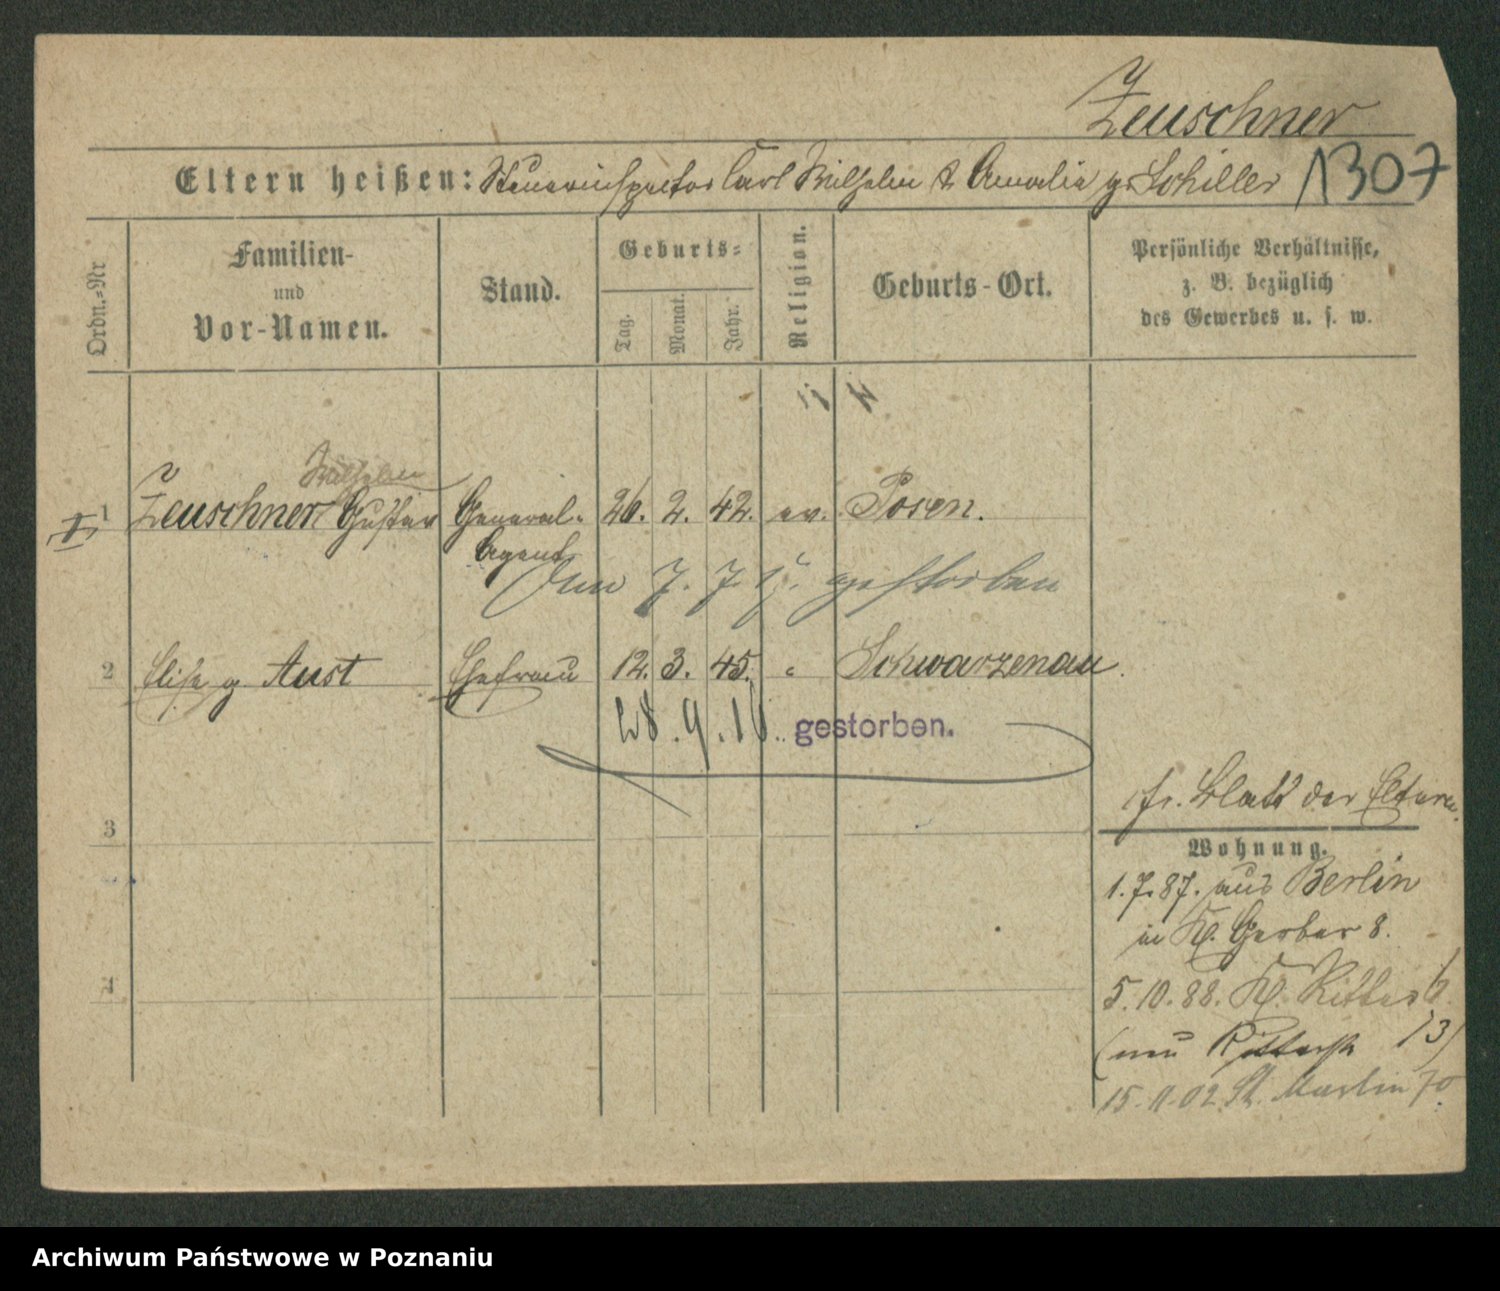 Zeuschner
Eltern heißen: Steuerinspector Carl Wilhelm & Amalie g. Schiller 1307
Ordn.-Nr
Familien-
und
Vor-Namen.
Stand.
Geburts-
Tag.
Monat.
Jahr.
Religion.
Geburts-Ort.
Persönliche Verhältnisse,
z. B. bezüglich
des Gewerbes u. s. w.
Wilhelm
1 Zeuschner Gustav General- 26. 2. 42. ev. Posen.
Agent
am 7. 7. gestorben
2 Elise g. Aust Ehefrau 12. 3. 45. " Schwarzenau.
28. 9. 10. gestorben.
fr. Blatt der Eltern.
3
Wohnung.
1. 7. 87. aus Berlin
in Kl. Gerber 8.
4
5. 10. 88. Kl. Ritter
(neu Ritterstr 13)
15. 11. 02 St. Martin 70
Archiwum Państwowe w Poznaniu